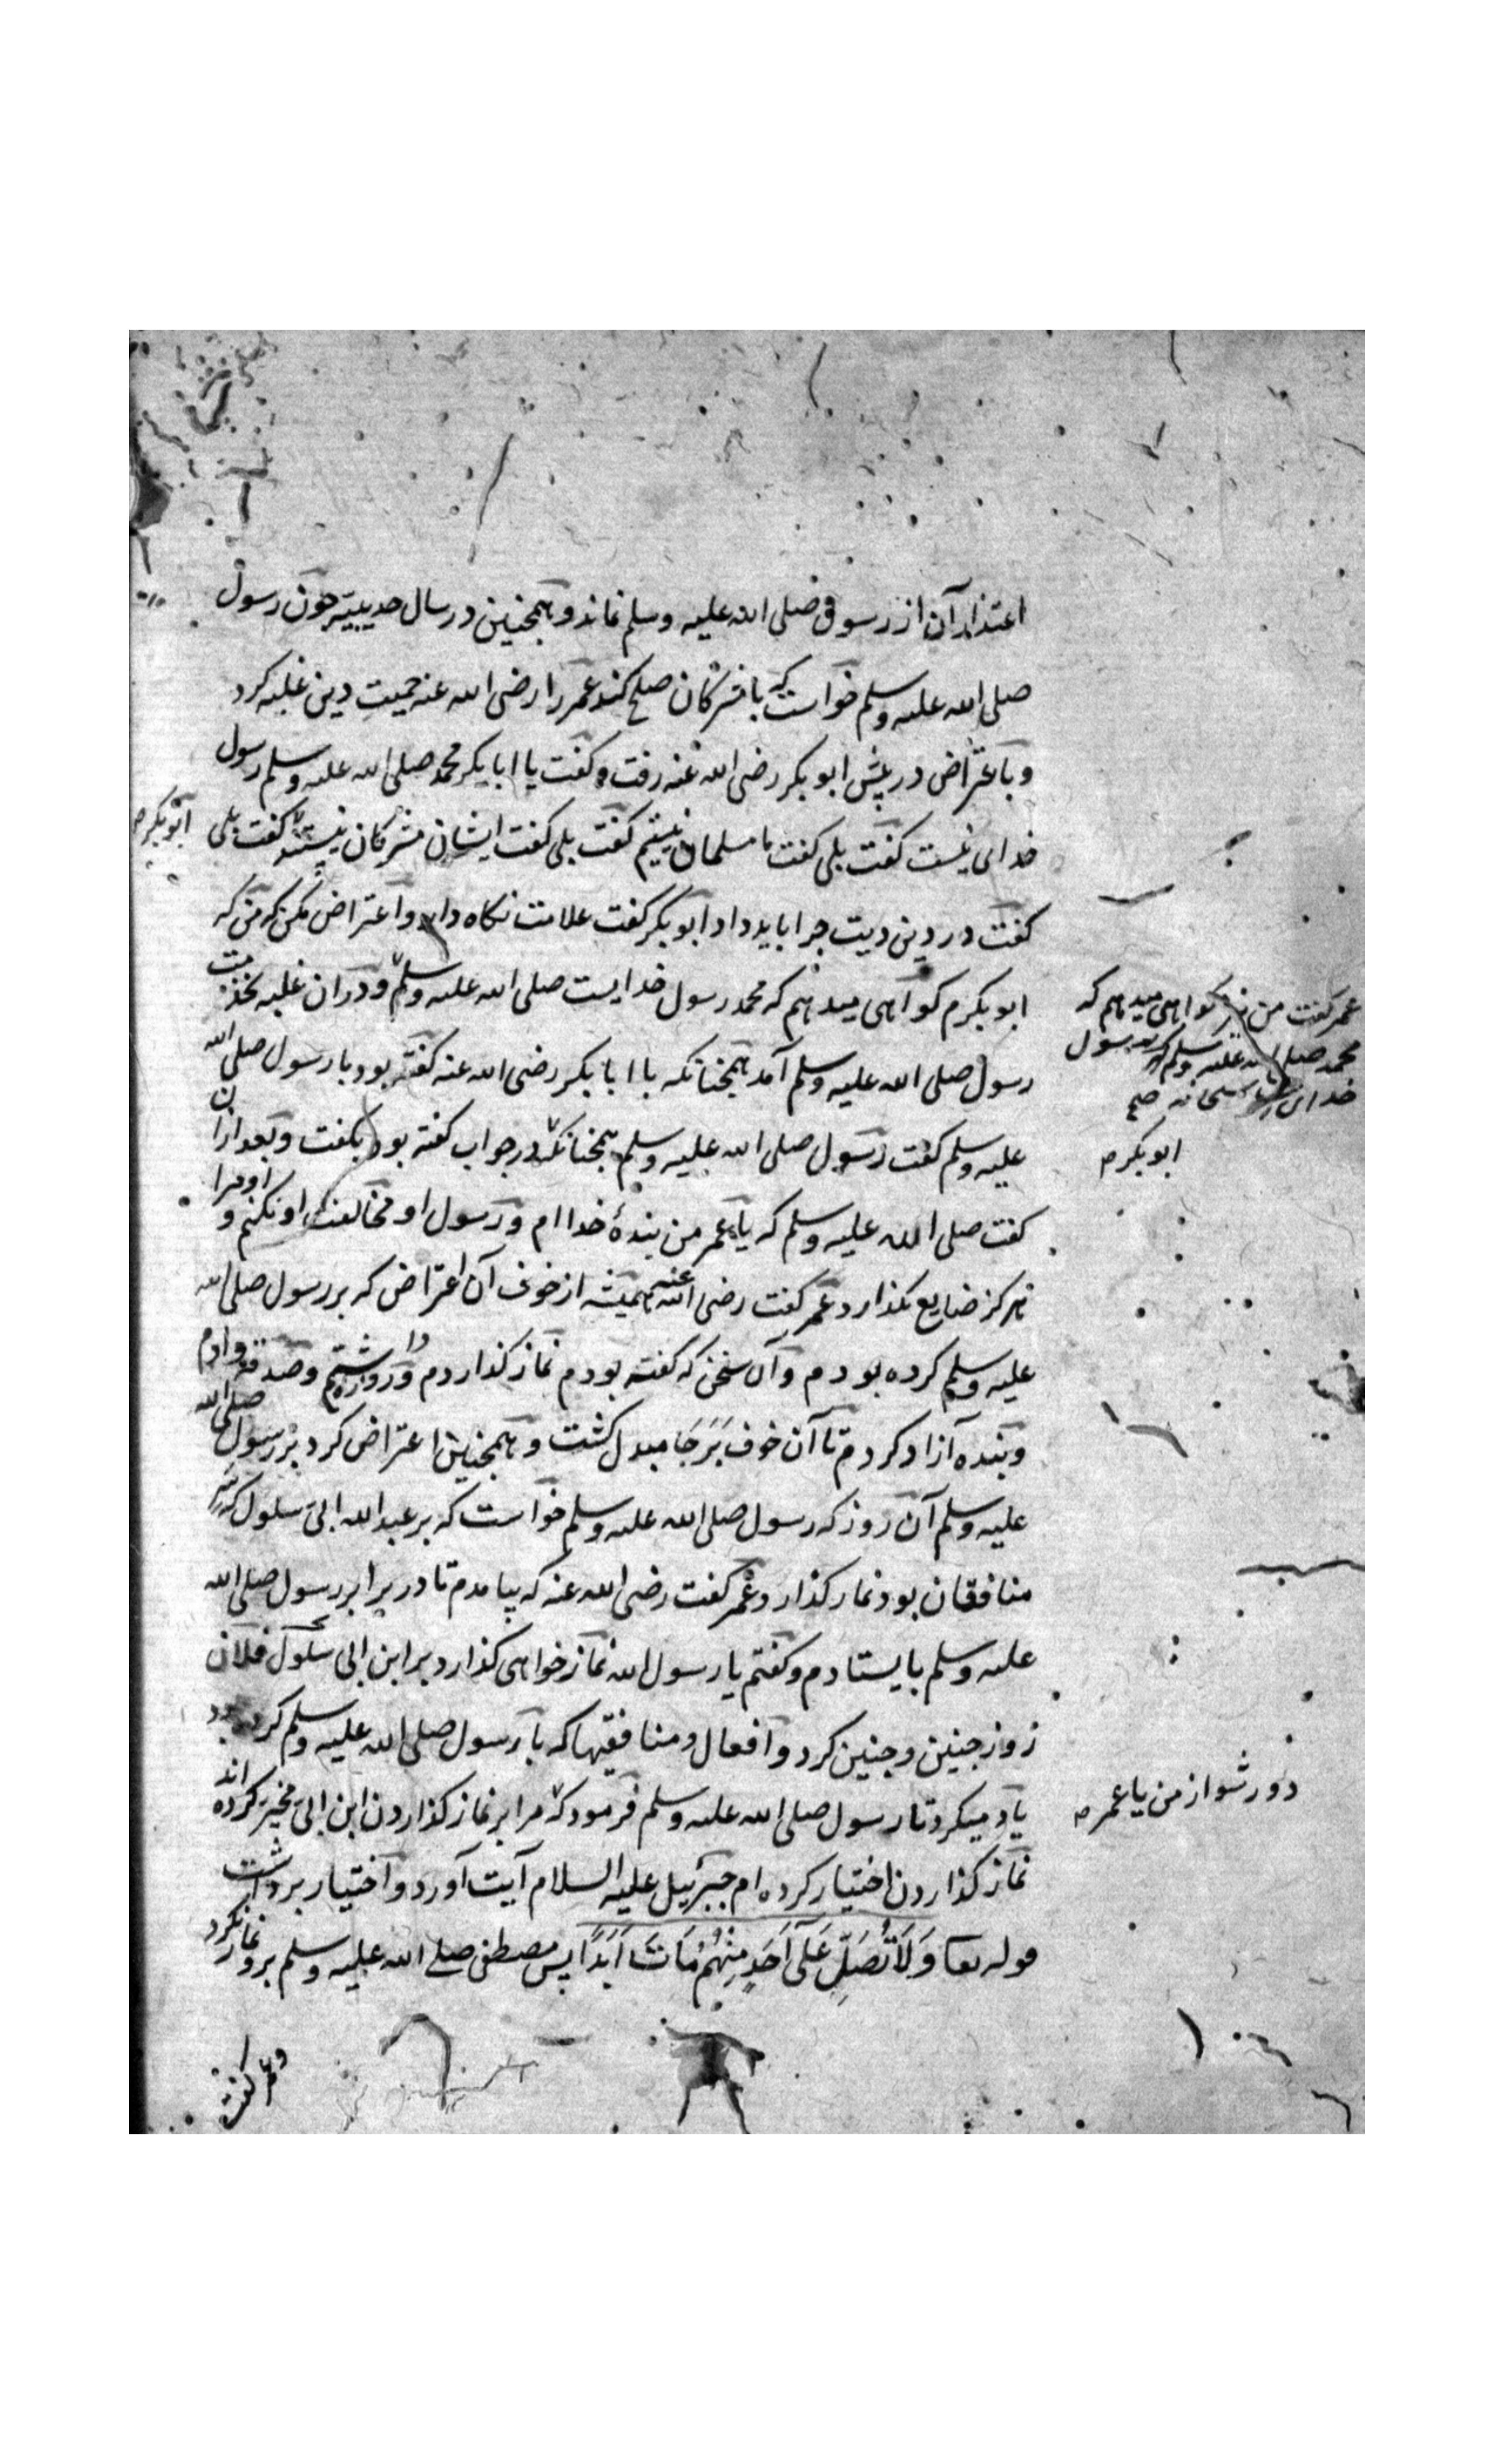 اعتذار آن از رسول صلی الله علیه وسلم نماند و همچنین در سال حدیبیه چون رسول
صلی الله علیه وسلم خواست که با مشرکان صلح کند عمر را رضی الله عنه حمیت دین غلبه کرد
و باعتراض در پیش ابوبکر رضی الله عنه رفت و گفت یا ابابکر محمد صلی الله علیه وسلم رسول
خدای نیست گفت بلی گفت ما مسلمان نیستیم گفت بلی گفت ایشان مشرکان نیستند گفت بلی
ابوبکر
گفت در دین دیت چرا باید داد ابوبکر گفت علامت نگاه دار و اعتراض مکن که من که
ابوبکرم گواهی میدهم که محمد رسول خدایست صلی الله علیه وسلم و در آن غلبه بخدمت
عمر گفت من نیز گواهی میدهم که
محمد صلی الله علیه وسلم رسول
خدای سبحانه صح
رسول صلی الله علیه وسلم آمد همچنانکه با ابابکر رضی الله عنه گفته بود با رسول صلی الله
علیه وسلم گفت رسول صلی الله علیه وسلم همچنانکه در جواب گفته بود بگفت و بعد از آن
ابوبکر
گفت صلی الله علیه وسلم که یا عمر من بندۀ خداام و رسول او مخالفت او نکنم و او مرا
هرگز ضایع نگذارد عمر گفت رضی الله عنه همیشه از خوف آن اعتراض که بر رسول صلی الله
علیه وسلم کرده بودم و آن سخن که گفته بودم نماز گذاردم و روزه داشتم و صدقه دادم
و بنده آزاد کردم تا آن خوف بَرَجَا مبدل گشت و همچنین اعتراض کرد بر رسول صلی الله
علیه وسلم آن روز که رسول صلی الله علیه وسلم خواست که بر عبدالله ابی سلول که سر
منافقان بود نماز گذارد عمر گفت رضی الله عنه که بیامدم تا در برابر رسول صلی الله
علیه وسلم بایستادم و گفتم یا رسول الله نماز خواهی گذارد بر ابن ابی سلول فلان
روز چنین و چنین کرد و افعال و منافقیها که با رسول صلی الله علیه وسلم کرده بود
یاد میکرد تا رسول صلی الله علیه وسلم فرمود که مرا بر نماز گذاردن ابن ابی مخیر کرده اند
دور شو از من یا عمر
نماز گذاردن اختیار کرده ام جبرئیل علیه السلام آیت آورد و اختیار برداشت
قوله تعا وَلَا تُصَلِّ عَلَى أَحَدٍ مِنْهُمْ مَاتَ أَبَدًا پس مصطفی صلی الله علیه وسلم برو نماز نکرد
و عمر گفت